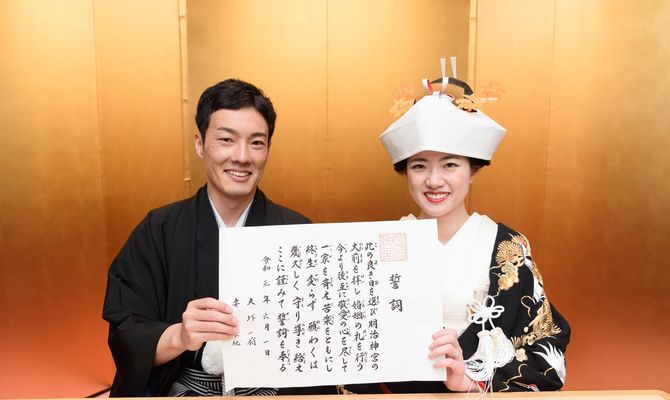 誓詞
此の良き日を選び明治神宮の
大前を拝し婚姻の礼を行う
今より後互に敬愛の心を尽して
一家を斉え苦楽をともにし
終生愛らず
願わくは
幾久しく守り導き給え
ここに謹みて誓詞を奉る
令和元年六月一日
夫
妻